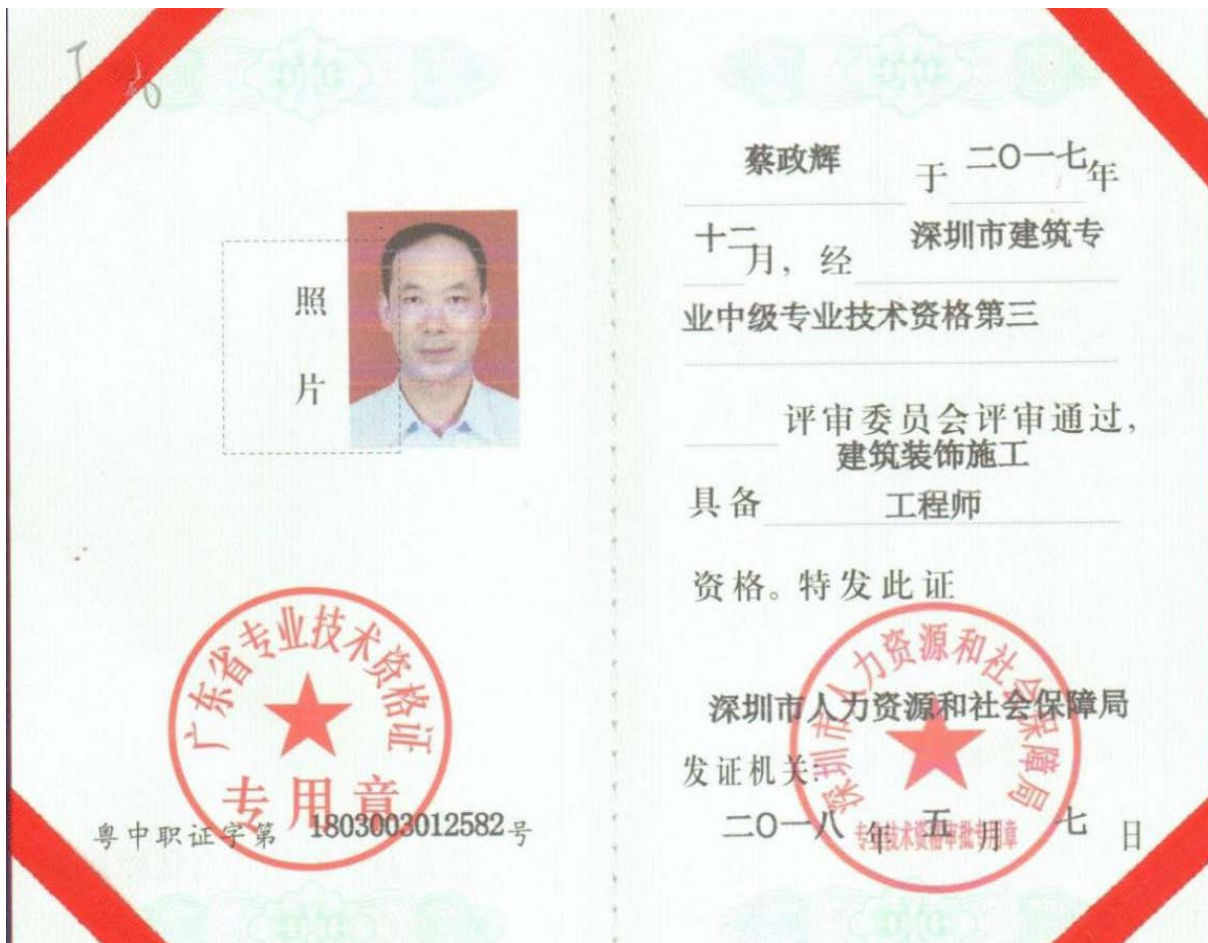 照
片
广东省专业技术资格证
专用章
粤中职证字第 1803003012582 号
蔡政辉 于 二〇一七 年
十二 月，经 深圳市建筑专
业中级专业技术资格第三
评审委员会评审通过，
建筑装饰施工
具备 工程师
资格。特发此证
深圳市人力资源和社会保障局
深圳市人力资源和社会保障局
发证机关：
二〇一八 年 五 月 七 日
专业技术资格审批专用章